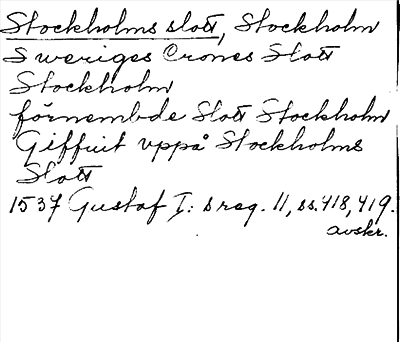 Stockholms slott, Stockholm
Sweriges Crones Slott
Stockholm
förnembde Slott Stockholm
Giffuit vppå Stockholms
Slott
1537 Gustaf I: s reg. 11, ss. 418, 419.
avskr.